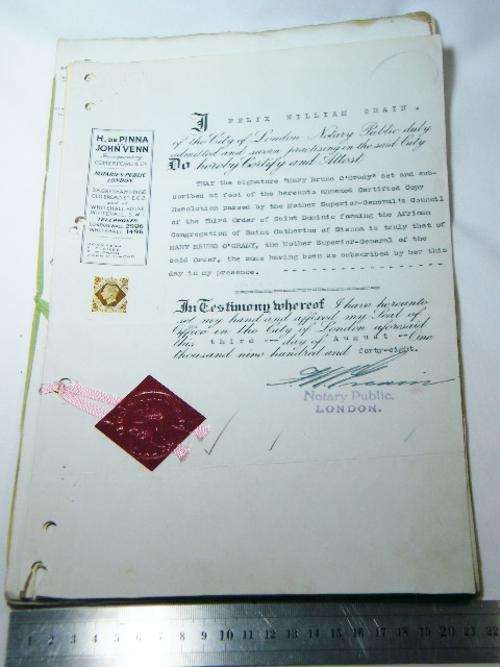 H. DE PINNA
&
JOHN VENN
NOTARIES PUBLIC
LONDON.
WHITEHALL S.W.
TELEPHONE
I FELIX WILLIAM GRAIN.
of the City of London Notary Public duly
admitted and sworn practising in the said City
Do hereby Certify and Attest
THAT the signature "Mary Bruno O'Grady" set and sub-
scribed at foot of the hereunto annexed Certified Copy
Resolution passed by the Mother Superior-General's Council
of the Third Order of Saint Dominic forming the African
Congregation of Saint Catherine of Sienna is truly that of
MARY BRUNO O'GRADY, the Mother Superior-General of the
said Order, the same having been so subscribed by her this
day in my presence.
In Testimony whereof I have hereunto
set my hand and affixed my Seal of
Office in the City of London aforesaid
this third day of August One
thousand nine hundred and forty-eight.
Notary Public.
LONDON.
1 2 3 4 5 6 7 8 9 10 11 12 13 14 15 16 17 18 19 20 21 22